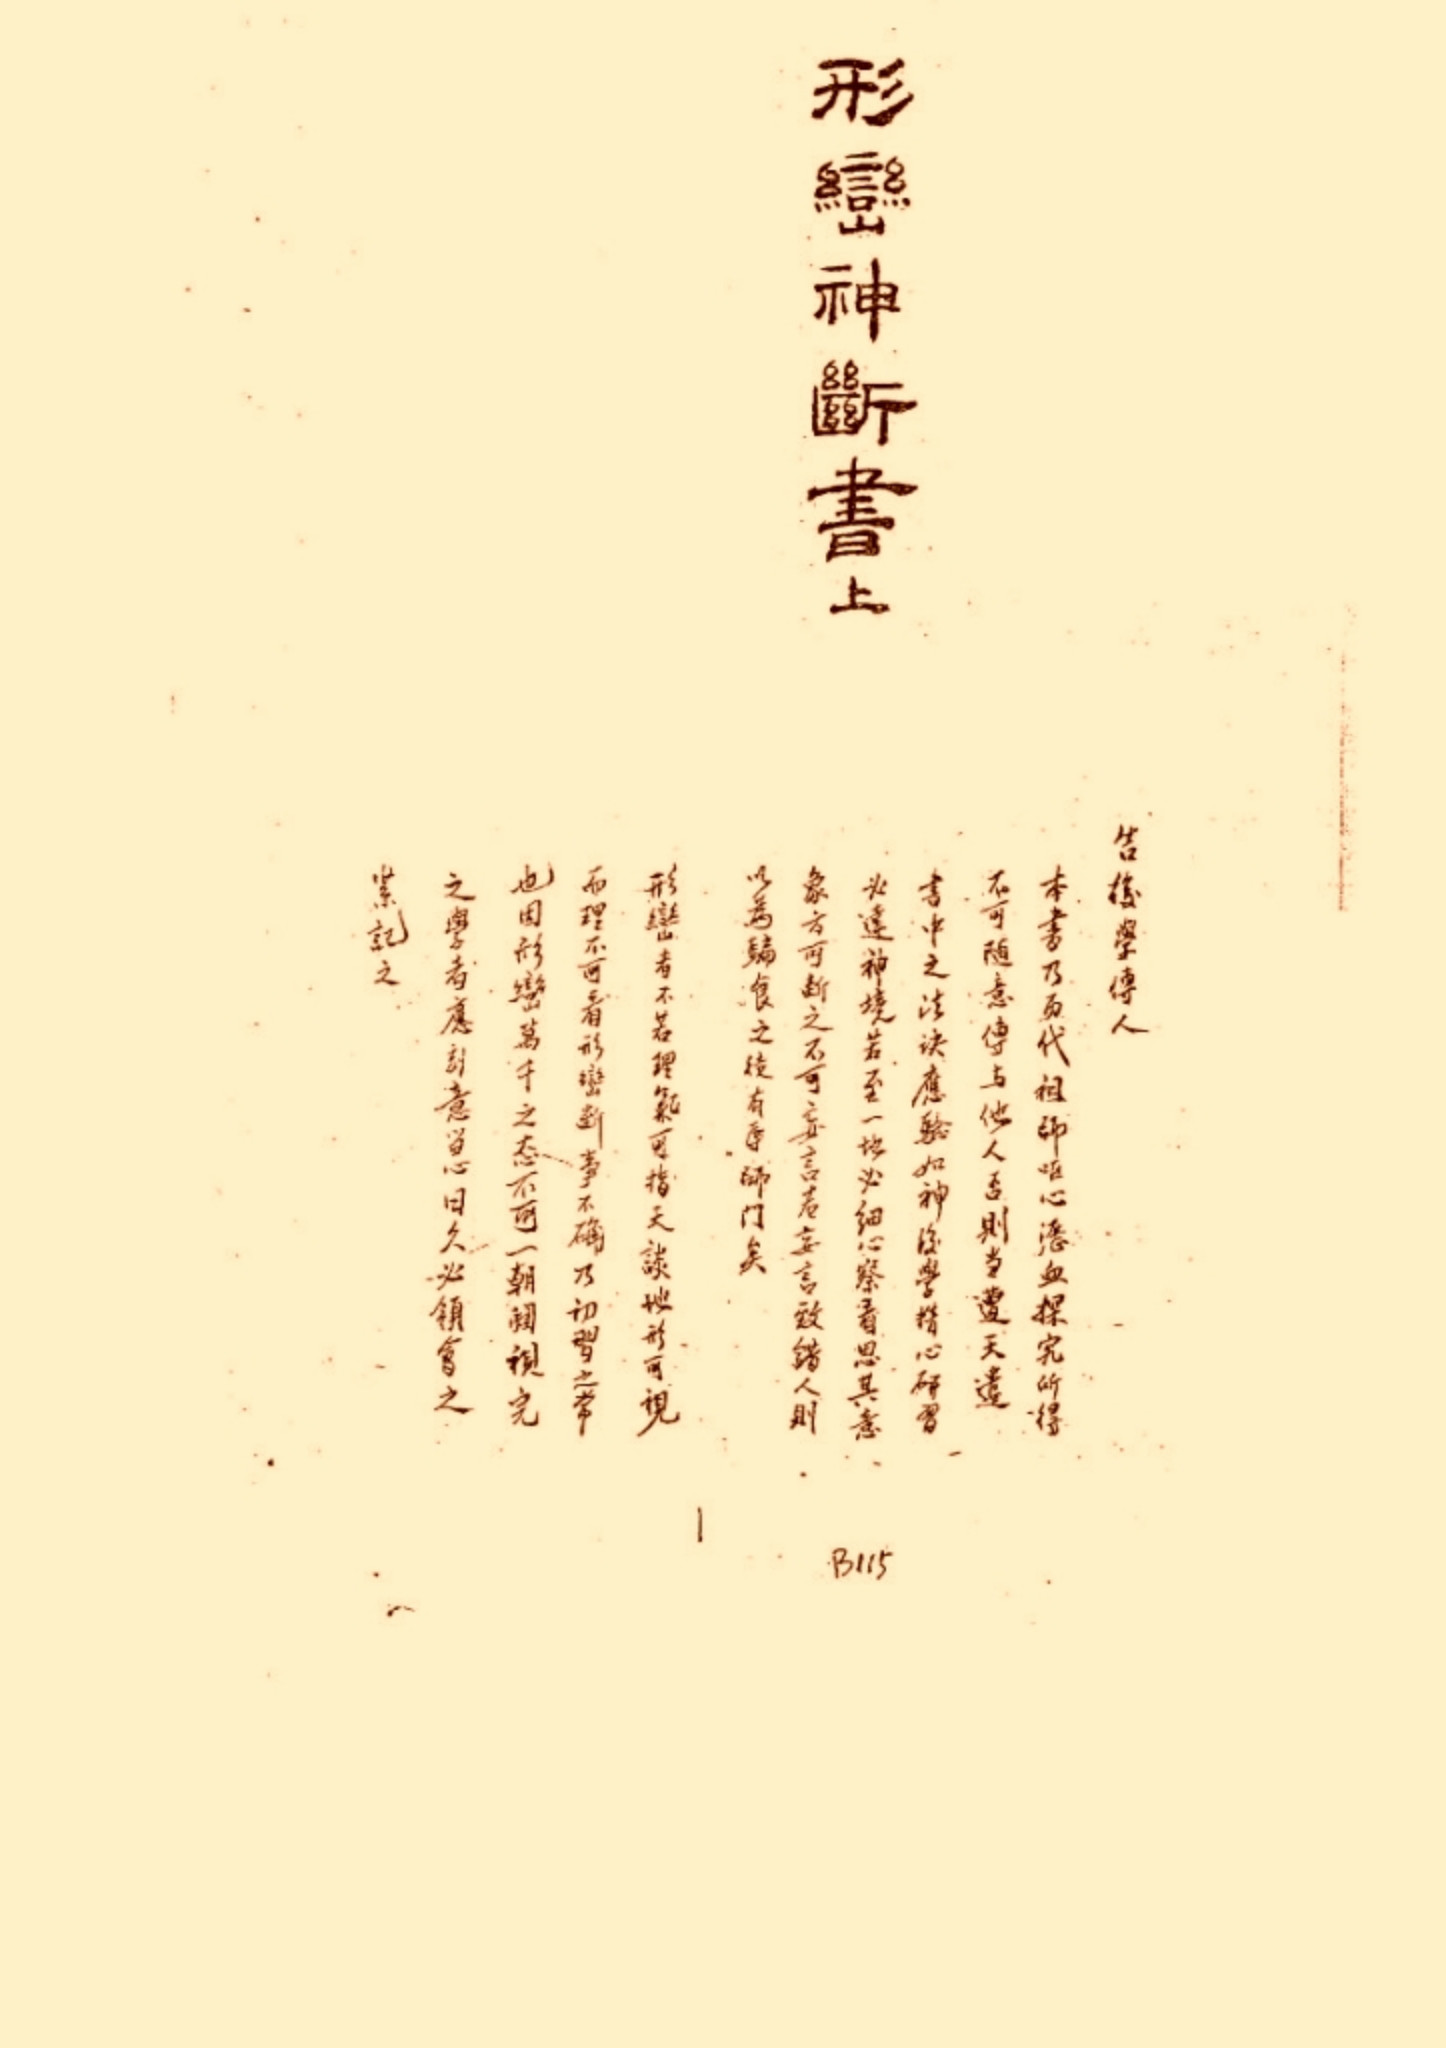 形巒神斷書上
告後學傳人
本書乃歷代祖師嘔心瀝血探究所得
不可隨意傳与他人否則当遭天遣
書中之法诀應驗如神後學精心研習
必達神境若至一地必細心察看思其意
象方可断之不可妄言若妄言致錯人則
以為騙食之徒有辱師门矣
形巒者不若理氣可指天談地形可視
而理不可看形巒断事不确乃初習之常
也因形巒萬千之态不可一朝闻視完
之學者應刻意留心日久必領會之
紫記之
B115